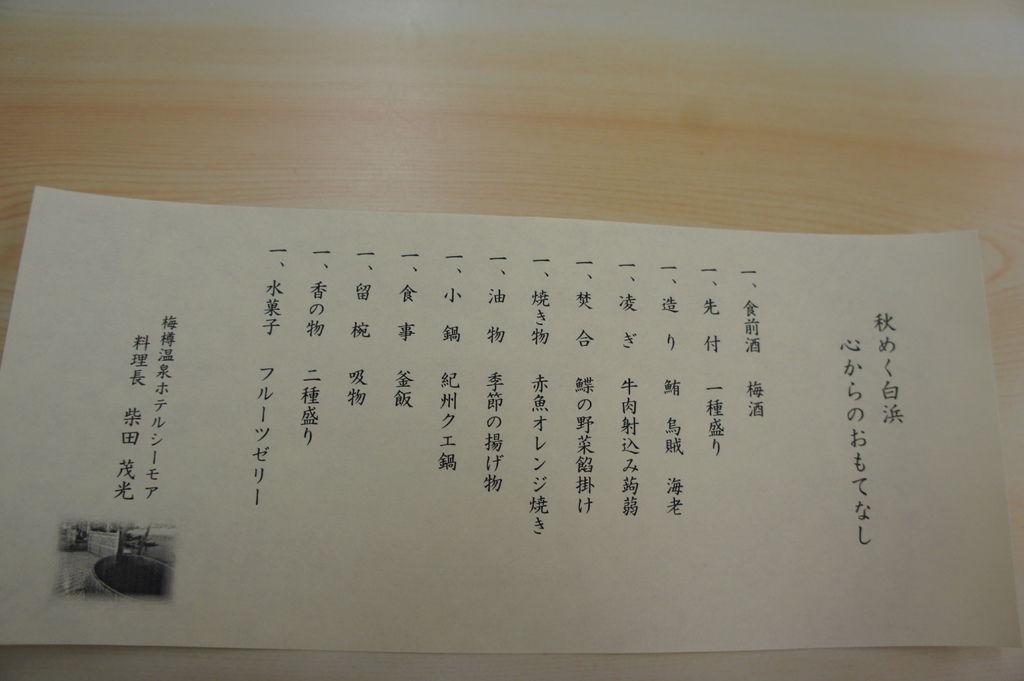 秋めく白浜
心からのおもてなし
一、食前酒 梅酒
一、先付 一種盛り
一、造り 鮪 烏賊 海老
一、凌ぎ 牛肉射込み蒟蒻
一、焚合 鰈の野菜餡掛け
一、焼き物 赤魚オレンジ焼き
一、油物 季節の揚げ物
一、小鍋 紀州クエ鍋
一、食事 釜飯
一、留椀 吸物
一、香の物 二種盛り
一、水菓子 フルーツゼリー
梅樽温泉ホテルシーモア
料理長 柴田 茂光